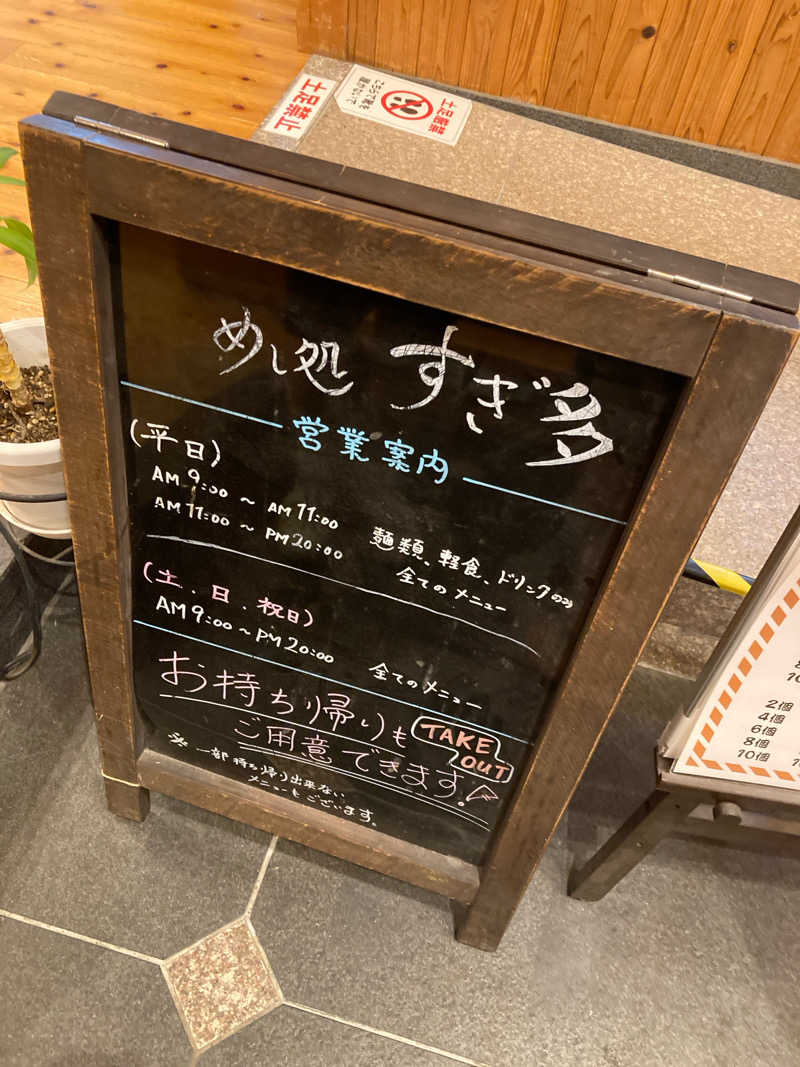 土足禁止
土足厳禁
めし処 すぎ多
営業案内
(平日)
AM 9:00 ~ AM 11:00 麺類、軽食、ドリンクのみ
AM 11:00 ~ PM 20:00 全てのメニュー
(土、日、祝日)
AM 9:00 ~ PM 20:00 全てのメニュー
お持ち帰りも TAKE OUT
ご用意できます。
※ 一部持ち帰り出来ない
メニューもございます。
2個
4個
6個
8個
10個